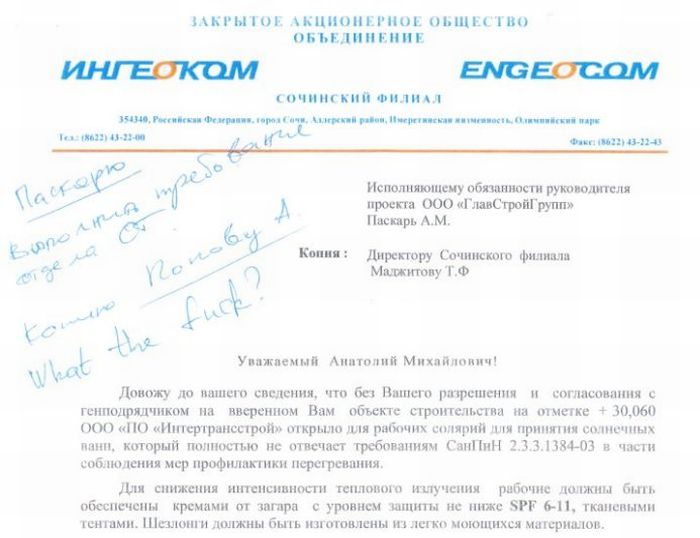 ЗАКРЫТОЕ АКЦИОНЕРНОЕ ОБЩЕСТВО
ОБЪЕДИНЕНИЕ
ИНГЕОКОМ ENGEOCOM
СОЧИНСКИЙ ФИЛИАЛ
354340, Российская Федерация, город Сочи, Адлерский район, Имеретинская низменность, Олимпийский парк
Тел.: (8622) 43-22-00 Факс: (8622) 43-22-43
Паскарю
Выполнить требование
отдела ОТ.
Копию Попову А.
What the fuck?
Исполняющему обязанности руководителя
проекта ООО «ГлавСтройГрупп»
Паскарь А.М.
Копия : Директору Сочинского филиала
Маджитову Т.Ф
Уважаемый Анатолий Михайлович!
Довожу до вашего сведения, что без Вашего разрешения и согласования с
генподрядчиком на вверенном Вам объекте строительства на отметке + 30,060
ООО «ПО «Интертрансстрой» открыло для рабочих солярий для принятия солнечных
ванн, который полностью не отвечает требованиям СанПиН 2.3.3.1384-03 в части
соблюдения мер профилактики перегревания.
Для снижения интенсивности теплового излучения рабочие должны быть
обеспечены кремами от загара с уровнем защиты не ниже SPF 6-11, тканевыми
тентами. Шезлонги должны быть изготовлены из легко моющихся материалов.